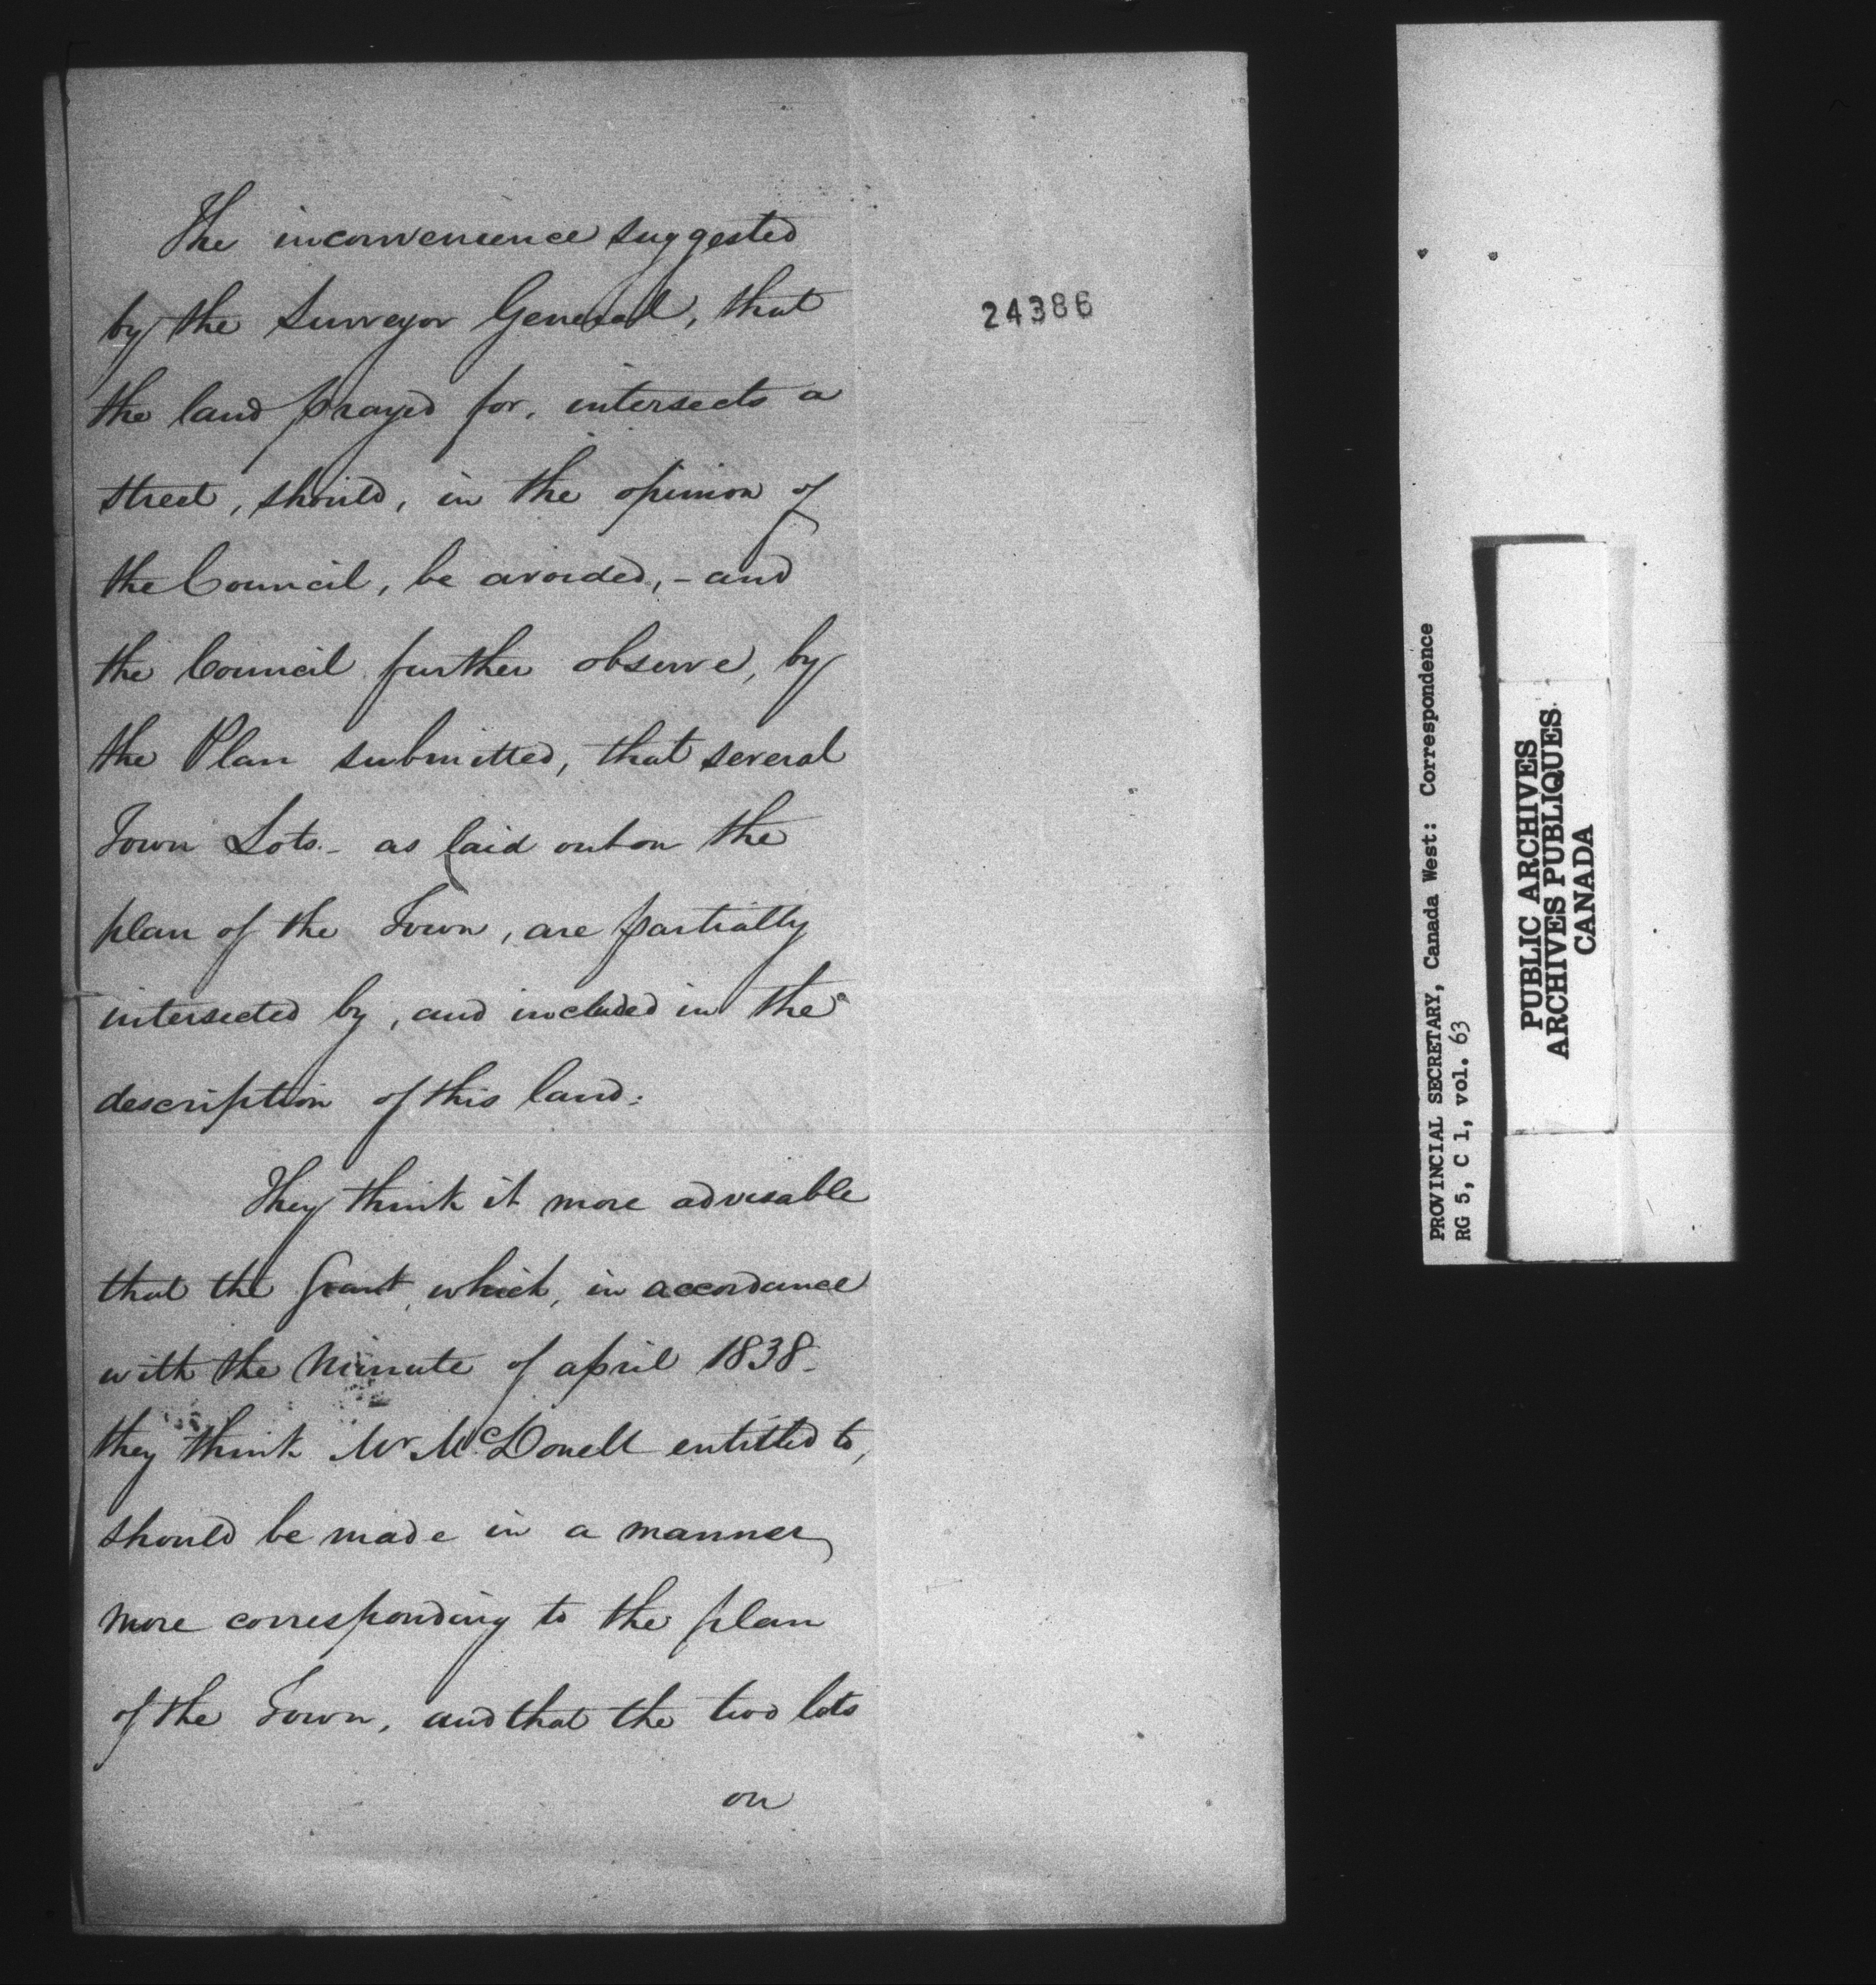 The inconvenience suggested
by the Surveyor General, that
the land prayed for, intersects a
street, should, in the opinion of
the Council, be avoided, - and
the Council further observe, by
the Plan submitted, that several
Town Lots - as laid out on the
plan of the Town, are partially
intersected by, and included in the
description of this land.
They think it more advisable
that the Grant, which, in accordance
with the Minute of april 1838-
they think Mr McDonell entitled to,
should be made in a manner
more corresponding to the plan
of the Town, and that the two lots
on
24386
PROVINCIAL SECRETARY, Canada West: Correspondence
RG 5, C 1, vol. 63
PUBLIC ARCHIVES
ARCHIVES PUBLIQUES
CANADA